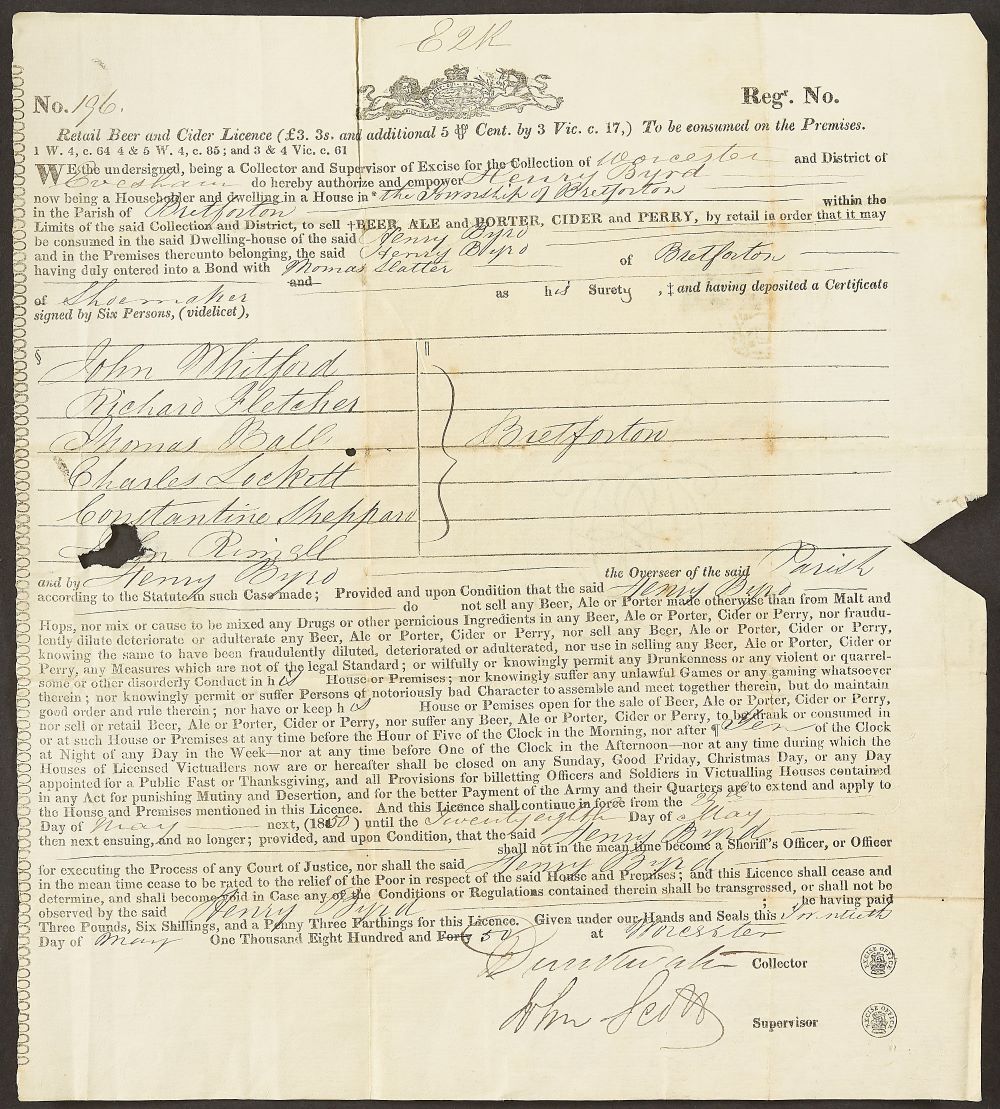 E2K
No. 196.
Regr. No.
Retail Beer and Cider Licence (£3. 3s. and additional 5 ⅌ Cent. by 3 Vic. c. 17,) To be consumed on the Premises.
1 W. 4, c. 64 4 & 5 W. 4, c. 85; and 3 & 4 Vic. c. 61
WE the undersigned, being a Collector and Supervisor of Excise for the Collection of Worcester and District of
Evesham do hereby authorize and empower Henry Byrd
now being a Householder and dwelling in a House in * the Township of Bretforton
in the Parish of Bretforton within the
Limits of the said Collection and District, to sell †BEER, ALE and PORTER, CIDER and PERRY, by retail in order that it may
be consumed in the said Dwelling-house of the said Henry Byrd
and in the Premises thereunto belonging, the said Henry Byrd of Bretforton
having duly entered into a Bond with Thomas Slatter
and
of Shoemaker as his Surety , ‡ and having deposited a Certificate
signed by Six Persons, (videlicet),
§ John Whitford ||
Richard Fletcher
Thomas Ball Bretforton
Charles Lockett
Constantine Sheppard
John Rimell
and by Henry Byrd the Overseer of the said Parish
according to the Statute in such Case made; Provided and upon Condition that the said Henry Byrd
do not sell any Beer, Ale or Porter made otherwise than from Malt and
Hops, nor mix or cause to be mixed any Drugs or other pernicious Ingredients in any Beer, Ale or Porter, Cider or Perry, nor fraudu-
lently dilute deteriorate or adulterate any Beer, Ale or Porter, Cider or Perry, nor sell any Beer, Ale or Porter, Cider or Perry,
knowing the same to have been fraudulently diluted, deteriorated or adulterated, nor use in selling any Beer, Ale or Porter, Cider or
Perry, any Measures which are not of the legal Standard; or wilfully or knowingly permit any Drunkenness or any violent or quarrel-
some or other disorderly Conduct in his House or Premises; nor knowingly suffer any unlawful Games or any gaming whatsoever
therein; nor knowingly permit or suffer Persons of notoriously bad Character to assemble and meet together therein, but do maintain
good order and rule therein; nor have or keep his House or Pemises open for the sale of Beer, Ale or Porter, Cider or Perry,
nor sell or retail Beer, Ale or Porter, Cider or Perry, nor suffer any Beer, Ale or Porter, Cider or Perry, to be drank or consumed in
or at such House or Premises at any time before the Hour of Five of the Clock in the Morning, nor after ¶ Ten of the Clock
at Night of any Day in the Week—nor at any time before One of the Clock in the Afternoon—nor at any time during which the
Houses of Licensed Victuallers now are or hereafter shall be closed on any Sunday, Good Friday, Christmas Day, or any Day
appointed for a Public Fast or Thanksgiving, and all Provisions for billetting Officers and Soldiers in Victualling Houses contained
in any Act for punishing Mutiny and Desertion, and for the better Payment of the Army and their Quarters are to extend and apply to
the House and Premises mentioned in this Licence. And this Licence shall continue in force from the
Day of May next, (1850) until the Twenty eighth Day of May
then next ensuing, and no longer; provided, and upon Condition, that the said Henry Byrd
shall not in the mean time become a Sheriff's Officer, or Officer
for executing the Process of any Court of Justice, nor shall the said Henry Byrd
in the mean time cease to be rated to the relief of the Poor in respect of the said House and Premises; and this Licence shall cease and
determine, and shall become void in Case any of the Conditions or Regulations contained therein shall be transgressed, or shall not be
observed by the said Henry Byrd ; he having paid
Three Pounds, Six Shillings, and a Penny Three Farthings for this Licence. Given under our Hands and Seals this Twentieth
Day of May One Thousand Eight Hundred and Forty 50 at Worcester
Collector
EXCISE OFFICE
John Scott Supervisor
EXCISE OFFICE